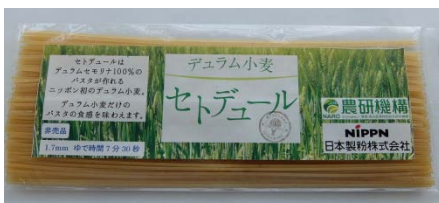 セトデュールは
デュラムセモリナ100%の
パスタが作れる
ニッポン初のデュラム小麦。
デュラム小麦だけの
パスタの食感を味わえます。
非売品
1.7mm ゆで時間7分30秒
デュラム小麦
セトデュール
農研機構
NARO
NIPPN
日本製粉株式会社